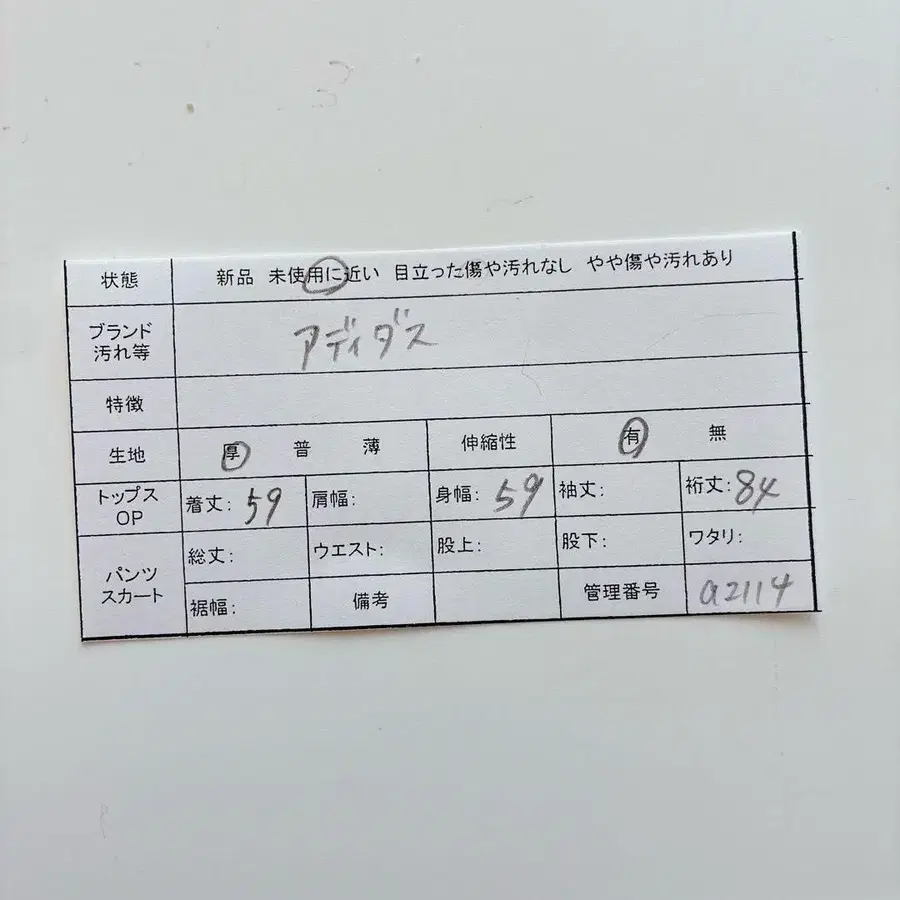 状態 新品 未使用に近い 目立った傷や汚れなし やや傷や汚れあり
ブランド 汚れ等 アディダス
特徴
生地 厚 普 薄 伸縮性 有 無
トップス OP 着丈: 59 肩幅: 身幅: 59 袖丈: 裄丈: 84
パンツ スカート 総丈: ウエスト: 股上: 股下: ワタリ:
裾幅: 備考 管理番号 a2114